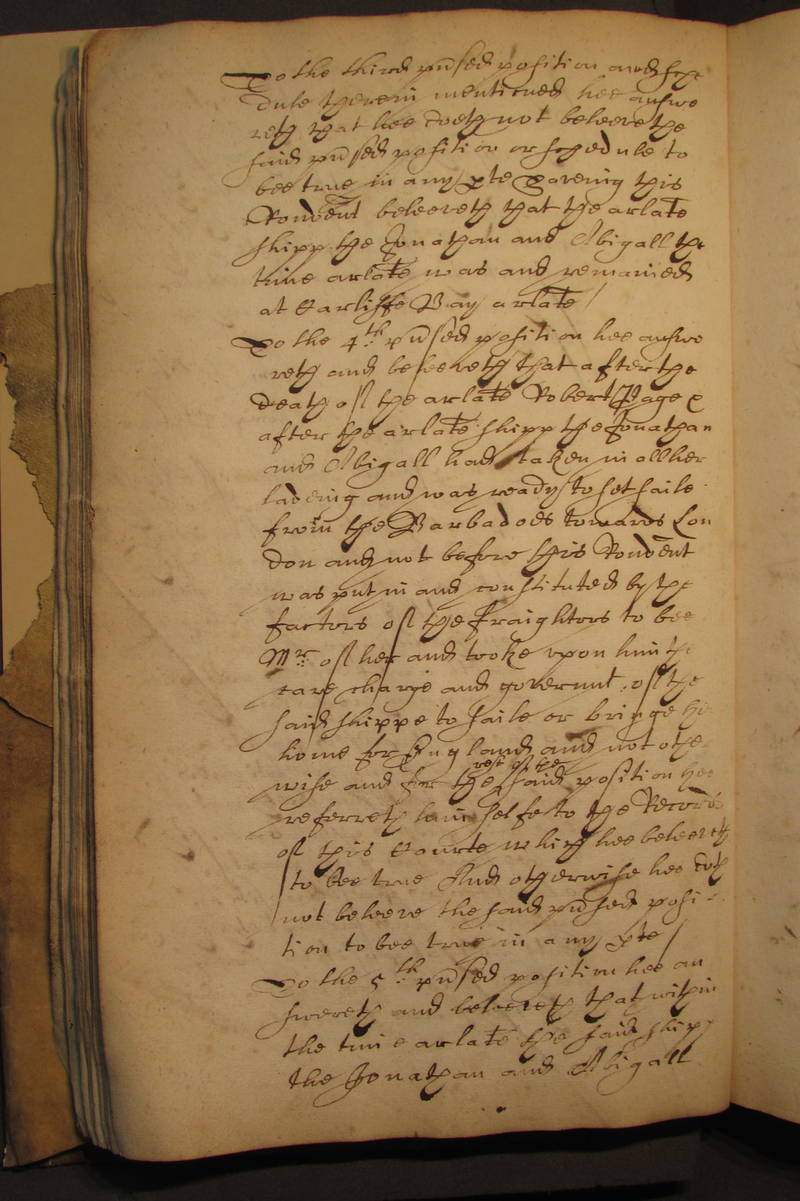 To the third pũsed position and sche
dule therein mentioned hee answe
reth that hee doeth not beleeve the
said pũsed position or schedule to
bee true in any pte Saveing this
Rondent beleeveth that the arlate
shipp the Jonathan and Abigall the
time arlate was and remained
at Carliffe Bay arlate /
To the 4th pũsed position hee answe
reth and beleeveth that after the
death of the arlate Robert Page &
after the arlate shipp the Jonathan
and Abigall had taken in all her
ladeing and was ready to set saile
from the Barbadoes towards Lon
don and not before this Rondent
was put in and constituted by the
factors of the fraighters to bee
Mr of her and tooke upon him the
care charge and governmt of the
said shippe to saile or bringe her
home for England and not other
wise and for the rest of the said position hee
referreth him selfe to the Records
of this Courte which hee beleeveth
to bee true And otherwise hee doth
not beleeve the said pũsed posi
tion to bee true in any pte /
To the 5th pũsed position hee an
swereth and beleeveth that within
the time arlate the said shipp
the Jonathan and Abigall